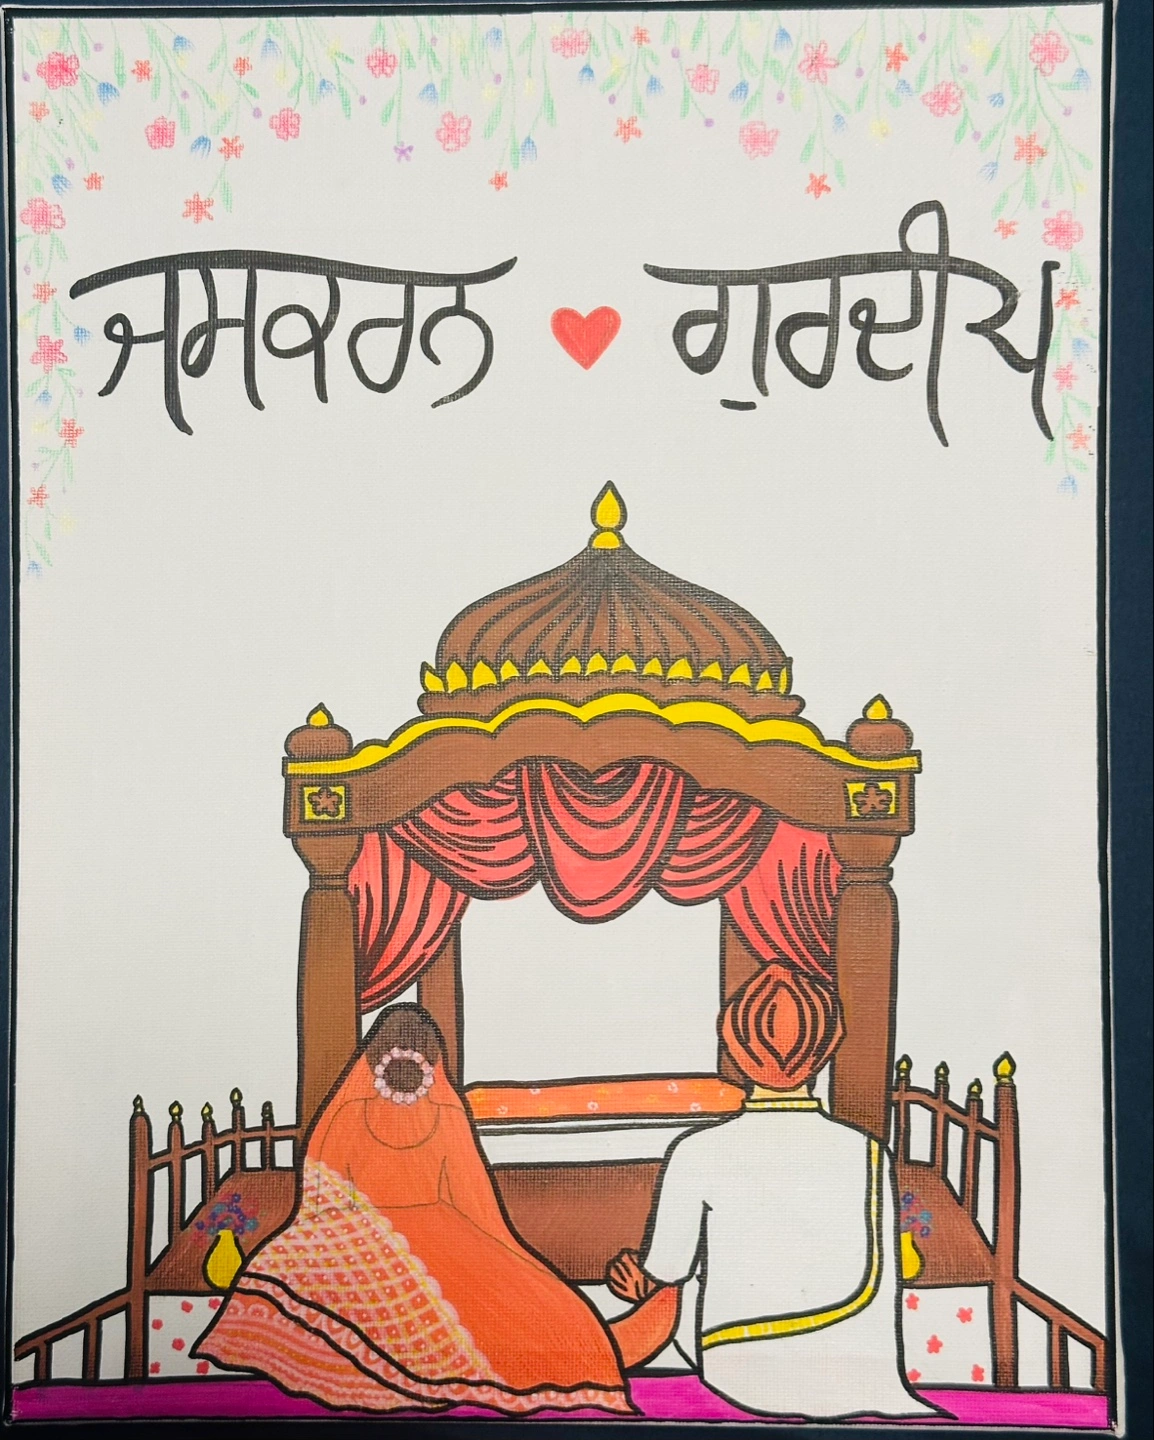 ਜਸਕਰਨ ❤ ਗੁਰਦੀਪ